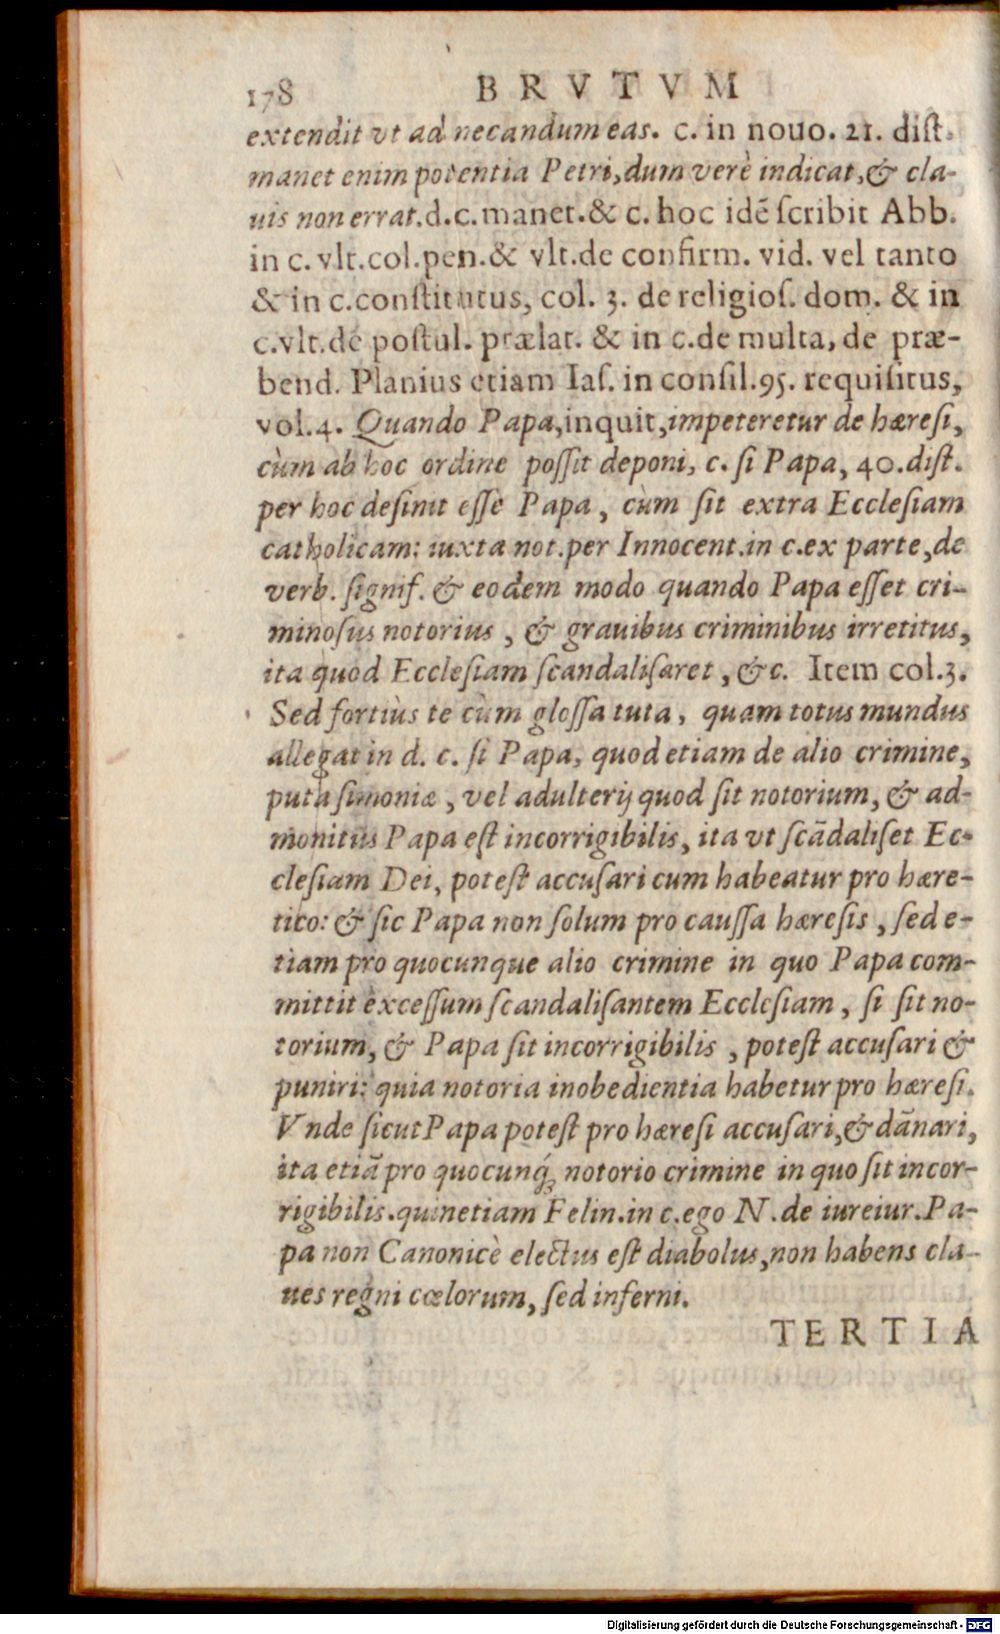 178 BRVTVM
extendit vt ad necandum eas. c. in nouo. 21. diſt.
manet enim potentia Petri, dum verè indicat, & cla-
uis non errat. d.c. manet. & c. hoc idẽ ſcribit Abb.
in c. vlt. col. pen. & vlt. de confirm. vid. vel tanto
& in c. conſtitutus, col. 3. de religioſ. dom. & in
c. vlt. de poſtul. prælat. & in c. de multa, de præ-
bend. Planius etiam Iaſ. in conſil. 95. requiſitus,
vol. 4. Quando Papa, inquit, impeteretur de hæreſi,
cùm ab hoc ordine poſſit deponi, c. ſi Papa, 40. diſt.
per hoc deſinit eſſe Papa, cùm ſit extra Eccleſiam
catholicam: iuxta not. per Innocent. in c. ex parte, de
verb. ſignif. & eodem modo quando Papa eſſet cri-
minoſus notorius, & grauibus criminibus irretitus,
ita quod Eccleſiam ſcandaliſaret, &c. Item col. 3.
Sed fortiùs te cùm gloſſa tuta, quam totus mundus
allegat in d. c. ſi Papa, quod etiam de alio crimine,
puta ſimoniæ, vel adulterij quod ſit notorium, & ad-
monitus Papa eſt incorrigibilis, ita vt ſcãdaliſet Ec-
cleſiam Dei, poteſt accuſari cum habeatur pro hære-
tico: & ſic Papa non ſolum pro cauſſa hæreſis, ſed e-
tiam pro quocunque alio crimine in quo Papa com-
mittit exceſſum ſcandaliſantem Eccleſiam, ſi ſit no-
torium, & Papa ſit incorrigibilis, poteſt accuſari &
puniri: quia notoria inobedientia habetur pro hæreſi.
Vnde ſicut Papa poteſt pro hæreſi accuſari, & dãnari,
ita etiã pro quocunq́; notorio crimine in quo ſit incor-
rigibilis. quinetiam Felin. in c. ego N. de iureiur. Pa-
pa non Canonicè electus eſt diabolus, non habens cla-
ues regni cœlorum, ſed inferni.
TERTIA
Digitalisierung gefördert durch die Deutsche Forschungsgemeinschaft - DFG